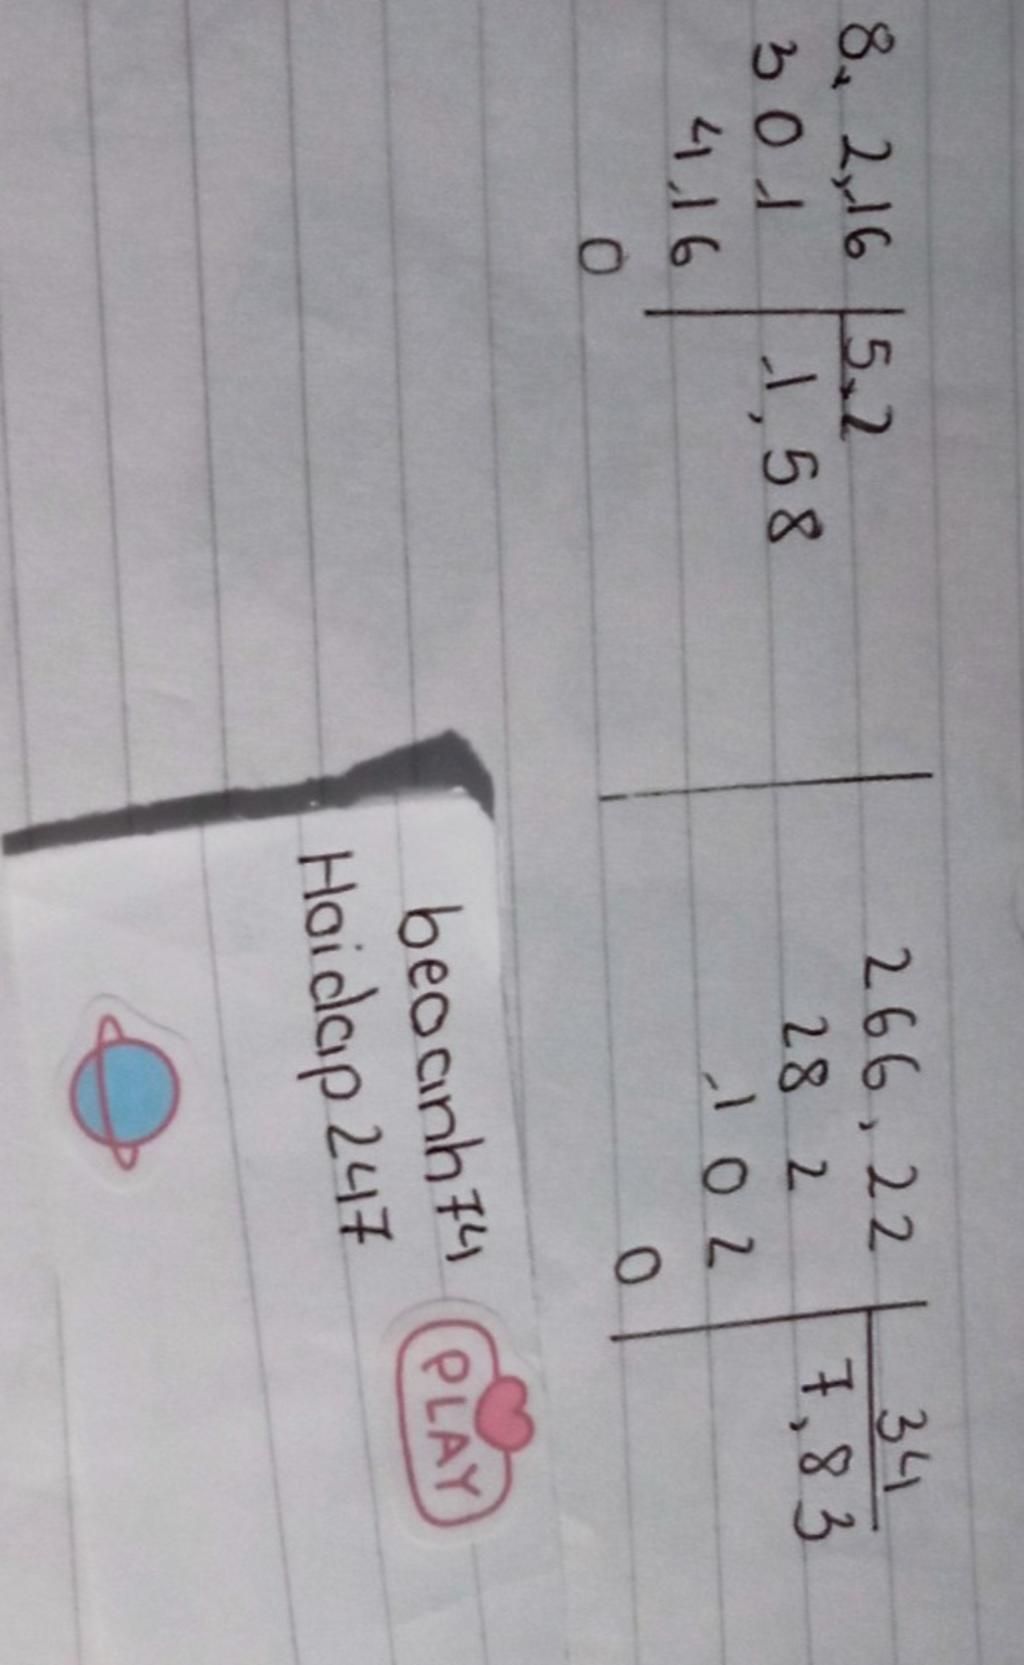 8,2,16 5,2
301 1,58
416
0
266,22 34
28 2 7,83
1 0 2
0
beoanh74
Hoidap247
PLAY